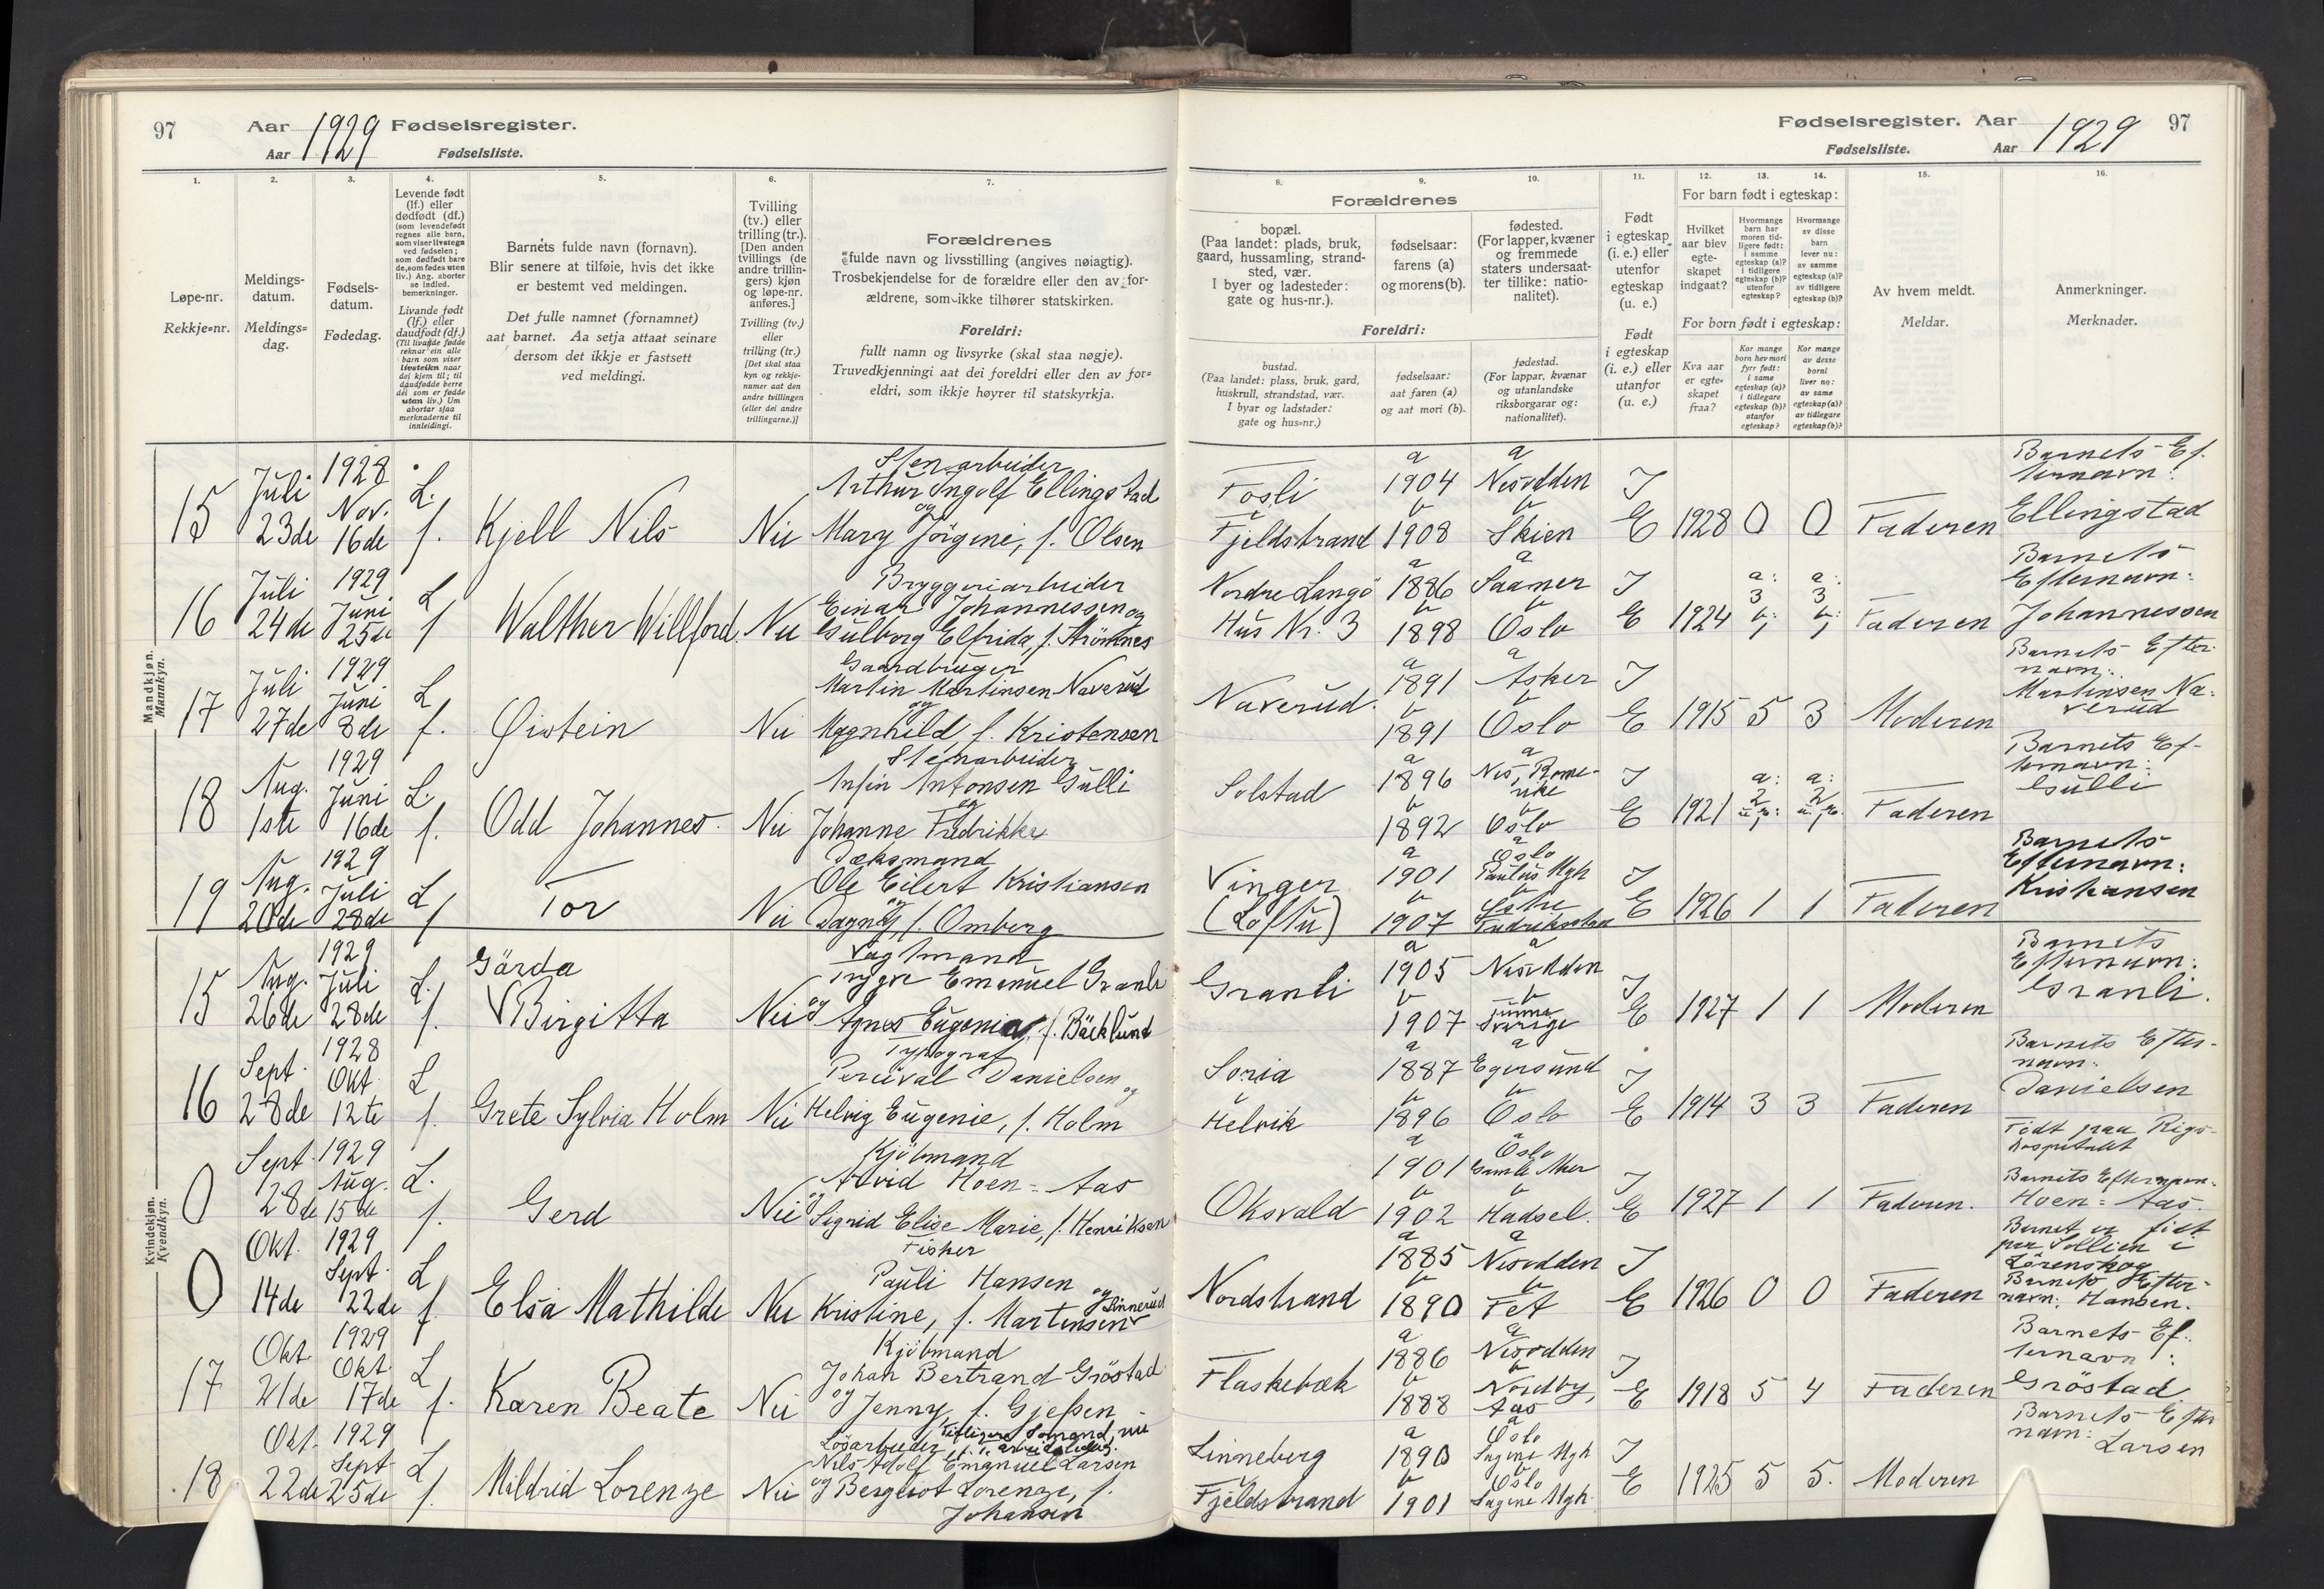 97
Aar 1929 Fødselsregister.
Aar
Fødselsliste.
1.
2.
3.
4.
5.
6.
7.
Løpe-nr.
Rekkje=nr.
Meldings-
datum.
Meldings=
dag.
Fødsels-
datum.
Fødedag.
Levende født
(lf.) eller
dødfødt (df.)
(som levendefødt
regnes alle barn,
som viser livstegn
ved fødselen;
som dødfødt bare
de, som fødes uten
liv.) Ang. aborter
se indled.
bemerkninger.
Livande født
(lf.) eller
daudfødt (df.)
(Til livande fødde
reknar ein alle
barn som viser
livsteikn naar
dei kjem til; til
daudfødde berre
dei som er fødde
utan liv.) Um
abortar sjaa
merknaderne til
innleidingi.
Barnets fulde navn (fornavn).
Blir senere at tilføie, hvis det ikke
er bestemt ved meldingen.
Det fulle namnet (fornamnet)
aat barnet. Aa setja attaat seinare
dersom det ikkje er fastsett
ved meldingi.
Tvilling
(tv.) eller
trilling (tr.).
[Den anden
tvillings (de
andre trillin-
gers) kjøn
og løpe-nr.
anføres.]
Tvilling (tv.)
eller
trilling (tr.)
[Det skal staa
kyn og rekkje-
numer aat den
andre tvillingen
(eller dei andre
trillingarne.)]
Forældrenes
fulde navn og livsstilling (angives nøiagtig).
Trosbekjendelse for de forældre eller den av for-
ældrene, som ikke tilhører statskirken.
Foreldri:
fullt namn og livsyrke (skal staa nøgje).
Truvedkjenningi aat dei foreldri eller den av for=
eldri, som ikkje høyrer til statskyrkja.
Fødselsregister. Aar 1929 97
Fødselsliste.
Aar
8.
9.
10.
11.
12.
13.
14.
15.
16.
Forældrenes
bopæl.
(Paa landet: plads, bruk,
gaard, hussamling, strand-
sted, vær.
I byer og ladesteder:
gate og hus-nr.).
fødselsaar:
farens (a)
og morens (b).
fødested.
(For lapper, kvæner
og fremmede
staters undersaat-
ter tillike: natio-
nalitet).
Foreldri:
bustad.
(Paa landet: plass, bruk, gard,
huskrull, strandstad, vær.
I byar og ladstader:
gate og hus=nr.)
fødselsaar:
aat faren (a)
og aat mori (b).
fødestad.
(For lappar, kvænar
og utanlandske
riksborgarar og:
nationalitet).
Født
i egteskap
(i. e.) eller
utenfor
egteskap
(u. e.)
Født
i egteskap
(i. e.) eller
utanfor
egteskap
(u. e.)
For barn født i egteskap:
Hvilket
aar blev
egte-
skapet
indgaat?
Hvormange
barn har
moren tid-
ligere født:
i samme
egteskap (a)?
i tidligere
egteskap (b)?
utenfor
egteskap?
Hvormange
av disse
barn
lever nu:
av samme
egteskap (a)?
av tidligere
egteskap (b)?
For born født i egteskap:
Kva aar
er egte-
skapet
fraa?
Kor mange
born hev mori
fyrr født:
i same
egteskap (a)?
i tidlegare
egteskap (b)?
utanfor
egteskap?
Kor mange
av desse
borni
liver no:
av same
egteskap (a)?
av tidlegare
egteskap (b)?
Av hvem meldt.
Meldar.
Anmerkninger.
Merknader.
Mandkjøn.
Mannkyn.
15 Juli 23de 1928 Nov. 16de L. f. Kjell Nils Nei Stenarbeider
Arthur Ingolf Ellingstad
og
Mary Jörgine, f. Olsen
Fosli
Fjeldstrand a 1904 b 1908 a Nesodden b Skien I E 1928 0 0 Faderen Barnets Ef-
ternavn:
Ellingstad
16 Juli 24de 1929 Juni 25de L f Walther Willford. Nei Bryggeriarbeider
Einar Johannessen og
Gulborg Elfrida, f. Strömnes
Nordre Langö
Hus Nr. 3 a 1886 b 1898 a Saaner b Oslo I E 1924 a: 3 b: 1 a: 3 b: 1 Faderen Barnets
Efternavn:
Johannessen
17 Juli 27de 1929 Juni 8de L f. Øistein Nei Gaardbruger
Martin Martinsen Naverud
og
Magnhild f. Kristensen
Naverud. a 1891 b 1891 a Asker b Oslo I E 1915 5 3 Moderen Barnets Efter-
navn:
Martinsen Na-
verud
18 Aug. 1ste 1929 Juni 16de L. f. Odd Johannes. Nei Stenarbeider
Antonsen Gulli
og
Johanne Fredrikke
Solstad a 1896 b 1892 a Nes, Rome-
rike b Oslo I E 1921 a: 2 a: 2 Faderen Barnets Ef-
ternavn:
Gulli
19 Aug. 20de 1929 Juli 28de L f Tor Nei Dæksmand
Ole Eilert Kristiansen
og
Dagny, f. Omberg
Vinger
(Loftu) a 1901 b 1907 a Oslo
Paulus Mgh b Østre
Fredrikstad I E 1926 1 1 Faderen Barnets
Efternavn:
Kristiansen
Kvindekjøn.
Kvendkyn.
15 Aug. 26de 1929 Juli 28de L. f. Gärda
V Birgitta Nei Vagtmand
Trygve Emanuel Granli
og
Agnes Eugenia, f. Bäcklund
Granli a 1905 b 1907 a Nesodden b
Sverige I E 1927 1 1 Moderen Barnets
Efternavn:
Granli.
16 Sept. 28de 1928 Okt. 12te L f. Grete Sylvia Holm Nei Typograf
Percival Danielsen og
Helvig Eugenie, f. Holm
Soria
Helvik a 1887 b 1896 a Egersund b Oslo I E 1914 3 3 Faderen Barnets Efter-
navn:
Danielsen
Födt paa Rigs-
hospitalet
0 Sept. 28de 1929 Aug. 15de L. f. Gerd Nei Kjöbmand
Arvid Hoen=Aas
og
Sigrid Elise Marie, f. Henriksen
Oksvald a 1901 b 1902 a Oslo
Gamle Aker b Hadsel. I E 1927 1 1 Faderen. Barnets Efternavn:
Hoen=Aas.
0 Okt. 14de 1929 Sept. 22de L f. Elsa Mathilde Nei Fisker
Pauli Hansen og
Kristine, f. Martinsen Linnerud
Nordstrand a 1885 b 1890 a Nesodden b Fet I E 1926 0 0 Faderen Barnet er födt
paa Sollien i
Lörenskog
Barnets Efter-
navn: Hansen.
17 Okt. 21de 1929 Okt. 17de L f. Karen Beate Nei Kjöbmand
Johan Bertrand Gröstad
og Jenny, f. Gjessen
Flaskebæk a 1886 b 1888 a Nesodden b Nordby,
Aas I E 1918 5 4 Faderen Barnets Ef-
ternavn:
Gröstad
18 Okt. 22de 1929 Sept. 25de L f. Mildrid Lorenze Nei Lösarbeider tidligere Sömand, nu
arbeidsledig.
Nils Adolf Emanuel Larsen
og Bergliot Lorenze, f.
Johansen
Linneberg
Fjeldstrand a 1890 b 1901 a Oslo
Sagene Mgh b Oslo
Sagene Mgh. I E 1925 5 5. Moderen Barnets Efter
navn: Larsen